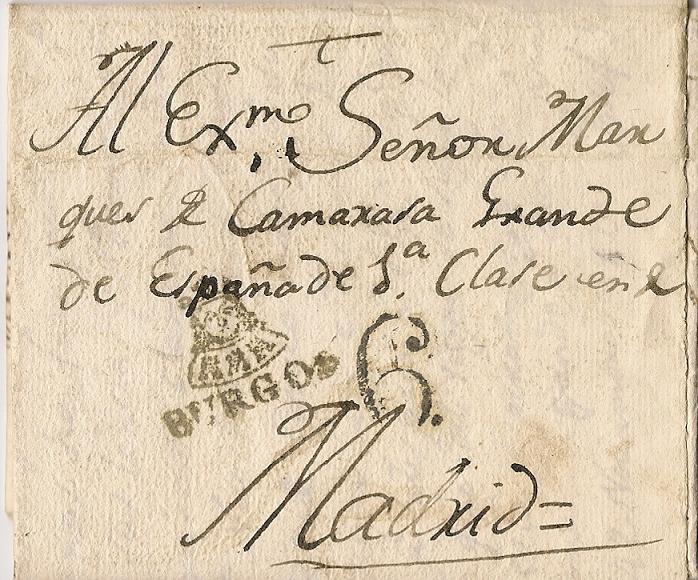 Al Exmo. Señor Mar
ques de Camarasa Grande
de España de 1.a Clase en &
BURGOS
6.
Madrid=